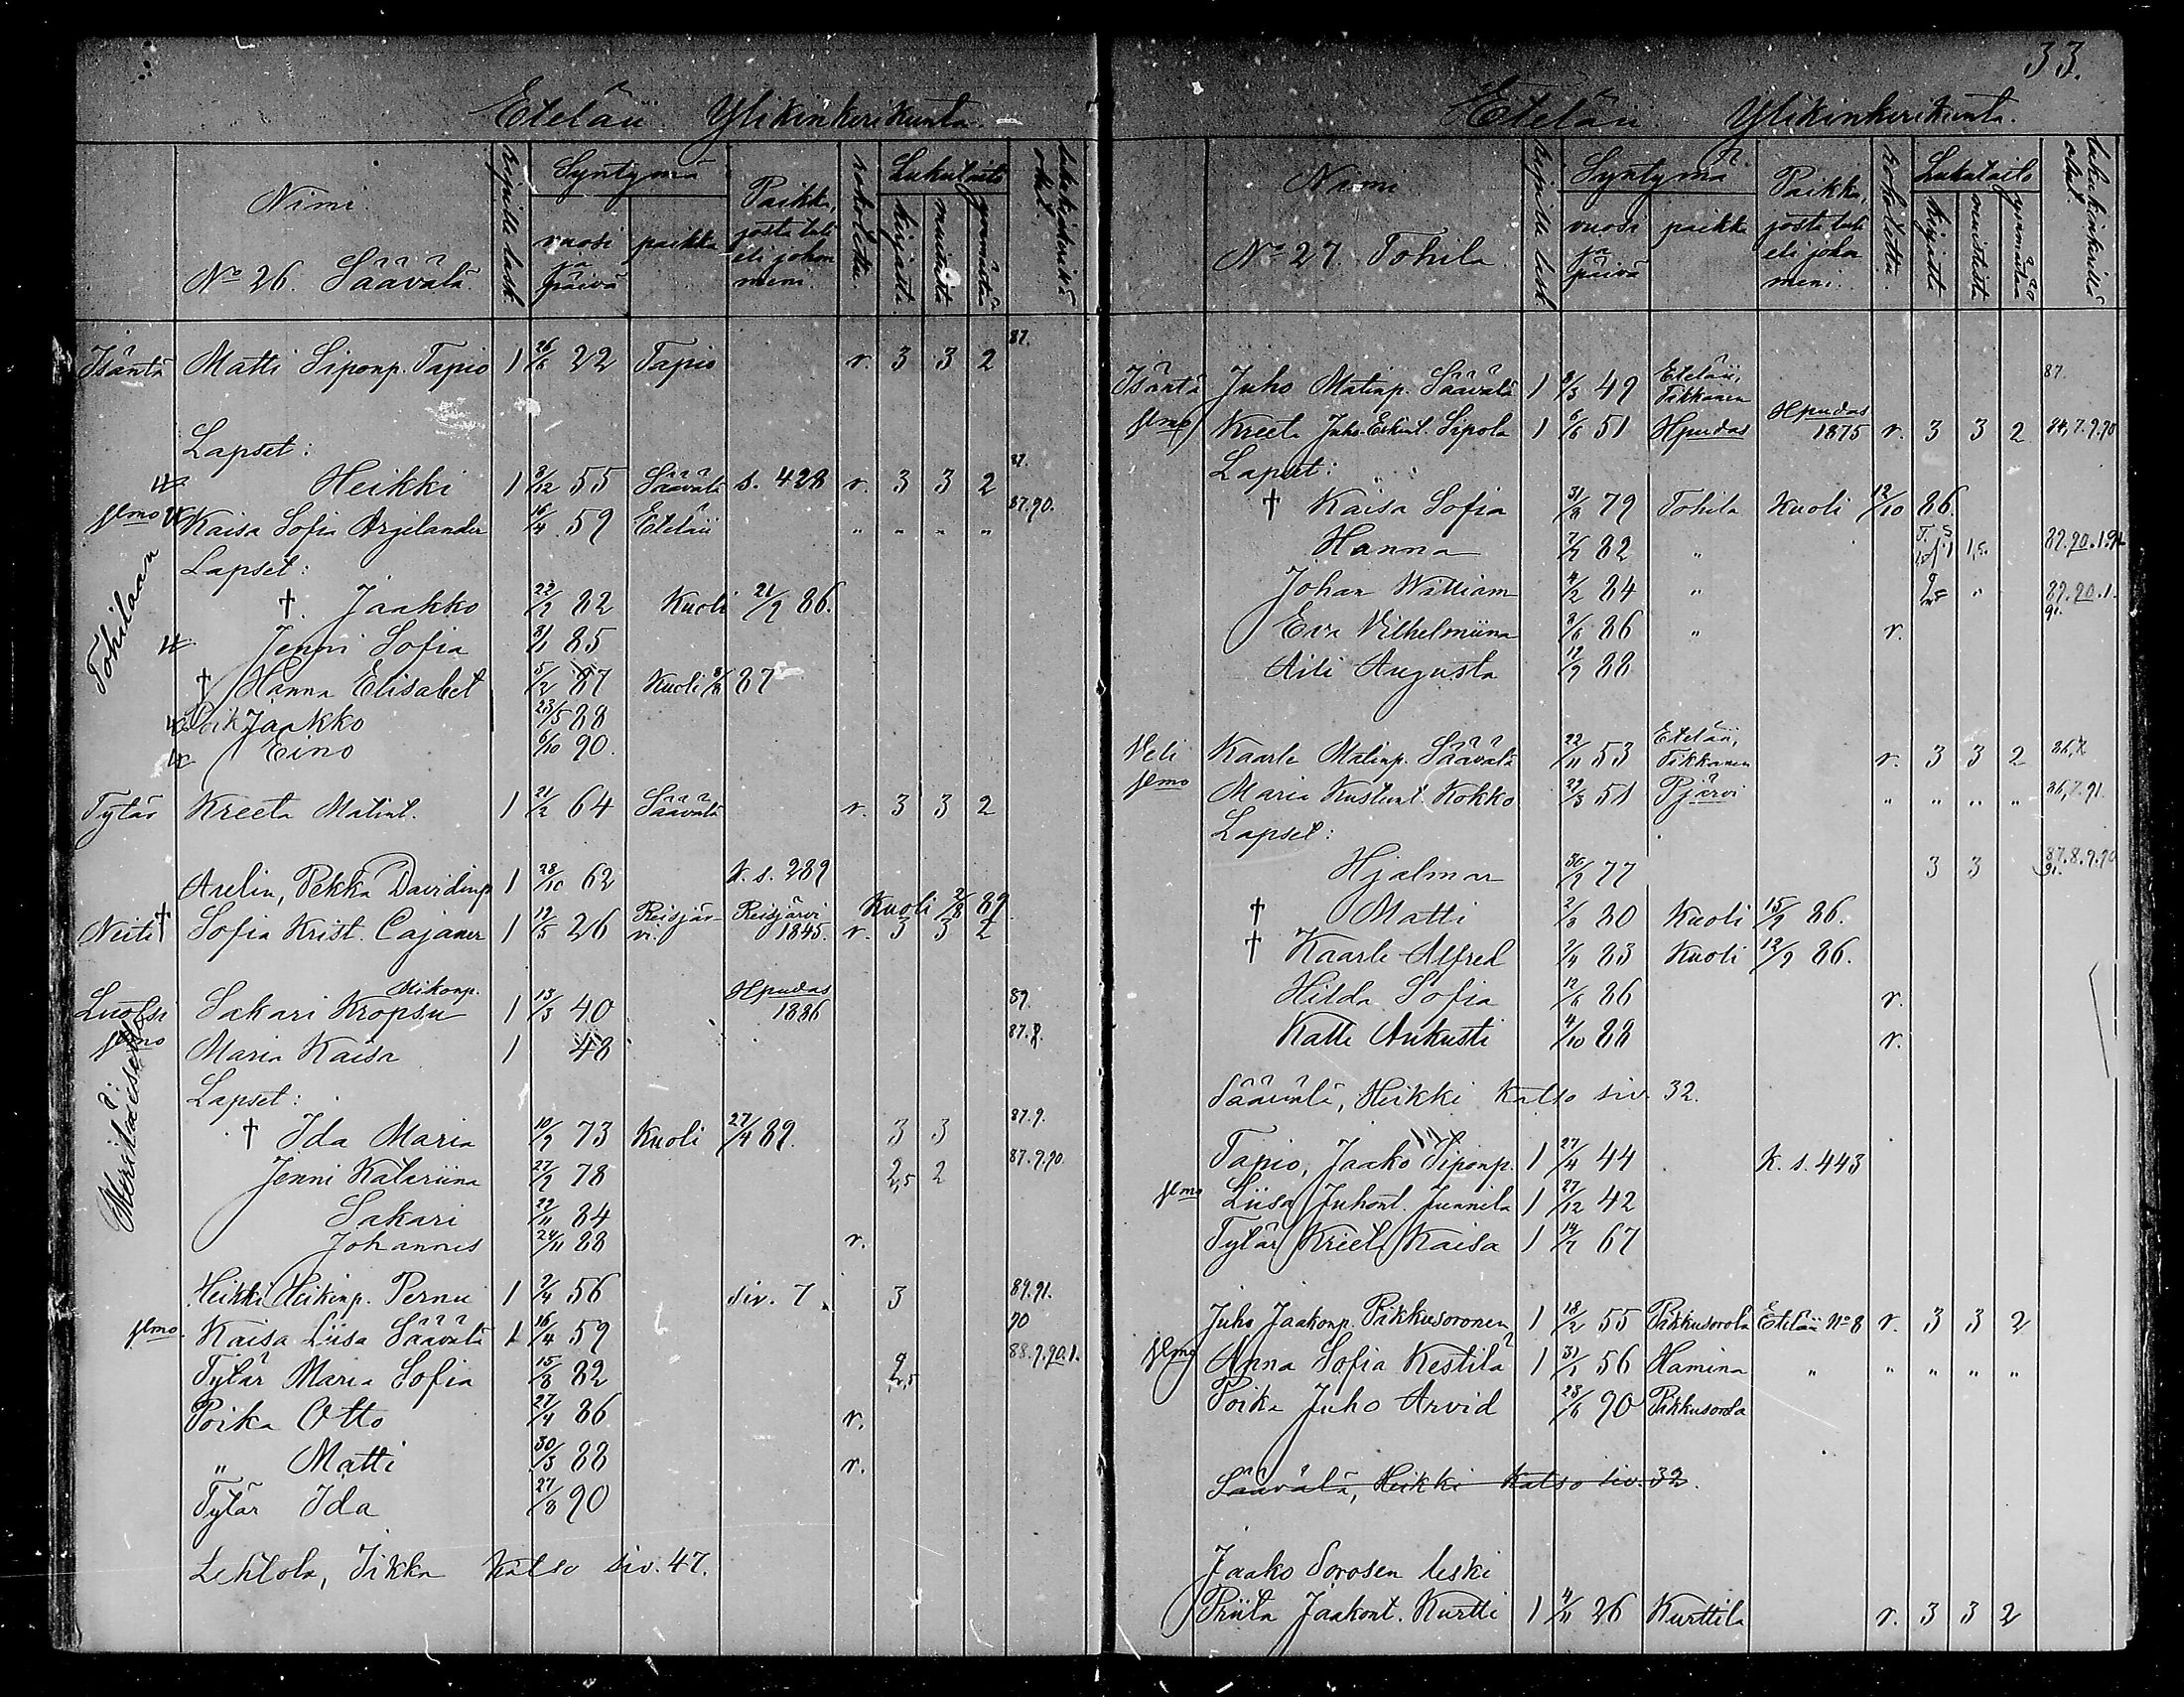 Eteläii Ylikinkerikunta.
Nimi
No 26. Säävälä.
ripille lask.
Syntymä
vuosi ja päivä
paikka
Paikka, josta tuli eli johon meni.
rokotettu.
Lukutaito
kirjasta
muistista
ymmärtää
lukukinkerillä ollut.
Isäntä Matti Siponp. Tapio 1 26/6 22 Tapio r. 3 3 2 87.
Lapset:
Heikki 1 8/12 55 Säävälä s. 428 r. 3 3 2 87.
Kaisa Sofia Arjelander 16/4 59 Eteläii " " " " 87.90.
Lapset:
† Jaakko 22/9 82 Kuoli 21/9 86.
Jenni Sofia 31/1 85
Tohilaan
† Hanna Elisabet 5/2 87 Kuoli 87
Poik Jaakko 23/5 88
Eino 6/10 90.
Tytär Kreeta Matint. 1 21/2 64 Säävälä r. 3 3 2
Axelin, Pekka Davidinp 1 28/10 62 K. s. 289
Kuoli 2/8 89
Neiti † Sofia Krist. Cajaner 1 19/5 26 Reisjärvi. Reisjärvi 1845. r. 3 3 2
Luotsi Sakari Kropsu Mikonp. 1 13/3 40 Hpudas 1886 89.
Maria Kaisa 1 48 87.8.
Lapset:
† Ida Maria 10/9 73 Kuoli 27/4 89. 3 3 87.9.
Jenni Katariina 27/9 78 2,5 2 87.9.90.
Sakari 22/11 84
Johannes 24/11 88 r.
Heikki Heikinp. Pernu 1 2/4 56 siv. 7. 3 89.91.
Kaisa Liisa Säävälä 1 16/4 59 90
Tytär Maria Sofia 15/8 82 2,5 88.9.90.1.
Poika Otto 27/4 86 r.
" Matti 30/3 88 r.
Tytär Ida 27/8 90
Lehtola, Iikka Katso siv. 47.
33.
Eteläii Ylikinkerikunta.
Nimi
No 27. Tohila
ripille lask
Syntymä
vuosi ja päivä
paikka
Paikka, josta tuli eli johon meni.
rokotettu.
Lukutaito
kirjasta
muistista
ymmärtää
lukukinkerillä ollut.
Isäntä Juho Matinp. Säävälä 1 49 Eteläii, Tikkanen 87.
Kreeta Juho-Erkint. Sipola 1 6/6 51 Hpudas Hpudas 1875 r. 3 3 2 84,7.9.90
Lapset:
† Kaisa Sofia 31/8 79 Tohila Kuoli 12/10 86.
Hanna 82 " 1,5.
Johan William 4/2 84 " " 89.90.1.
Eva Vilhelmiina 3/6 86 " r.
Aili Augusta 19/9 88
Veli Kaarle Matinp. Säävälä 22/11 53 Eteläii, Tikkanen r. 3 3 2
Maria Kustunt. Kokko 29/3 51 Pjärvi " " " " 86,7.91.
Lapset:
Hjalmar 30/9 77 3 3 87.8.9.90 91.
† Matti 2/8 80 Kuoli 15/9 86.
† Kaarle Alfred 2/4 83 Kuoli 12/9 86.
Hilda Sofia 12/6 86 r.
Kalle Aukusti 4/10 88 r.
Säävälä, Heikki Katso siv. 32.
Tapio, Jaako Siponp. 1 27/4 44 K. s. 443
Liisa Juhont. Junnila 1 27/12 42
Tytär Kreeta Kaisa 1 67
Juho Jaakonp. Pikkusoronen 1 18/2 55 Pikkusorola Eteläii No 8 r. 3 3 2
Anna Sofia Kestilä 1 31/1 56 Hamina " " " " "
Poika Juho Arvid 28/6 90 Pikkusorola
Säävälä, Heikki Katso siv. 32.
Jaako Sorosen leski
Priita Jaakont. Kurtti 1 4/11 26 Kurttila r. 3 3 2